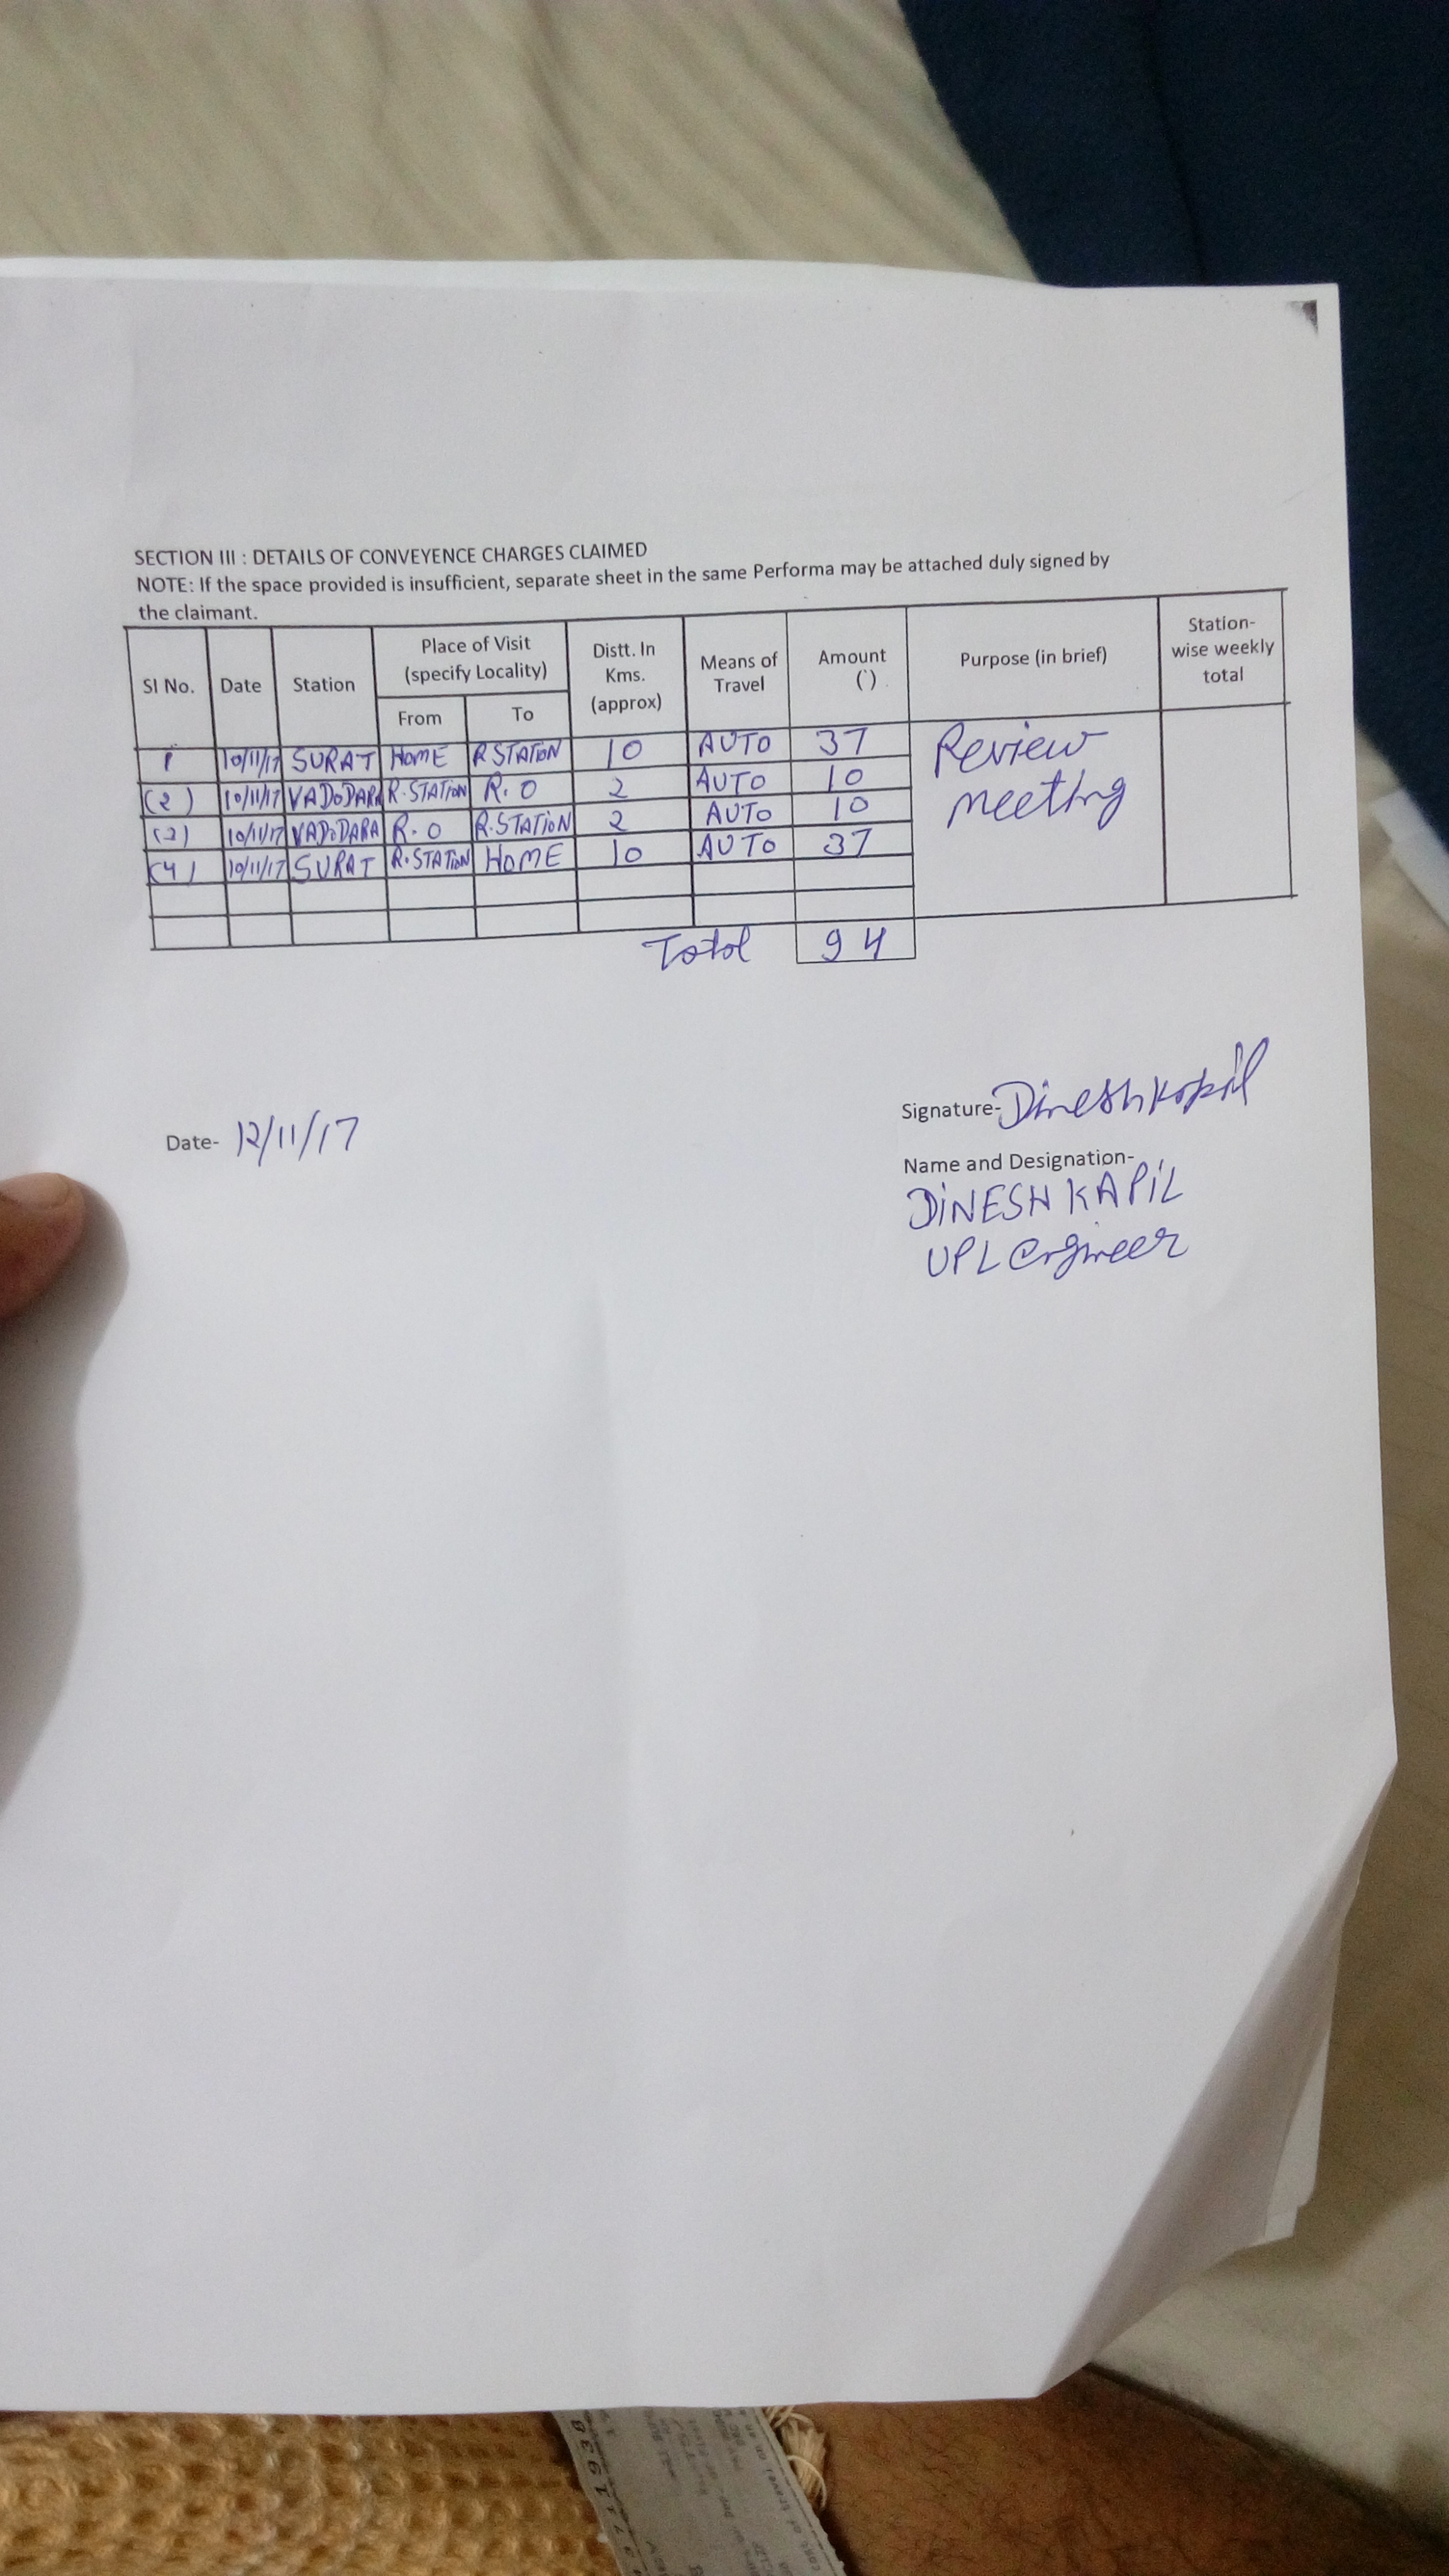 SECTION III : DETAILS OF CONVEYENCE CHARGES CLAIMED
NOTE: If the space provided is insufficient, separate sheet in the same Performa may be attached duly signed by
the claimant.
Sl No. Date Station Place of Visit (specify Locality) From To Distt. In Kms. (approx) Means of Travel Amount (`) Purpose (in brief) Station-wise weekly total
1 10/11/17 SURAT HOME R STATION 10 AUTO 37 Review
(2) 10/11/17 VADODARA R.STATION R.O 2 AUTO 10 meeting
(3) 10/11/17 VADODARA R.O R.STATION 2 AUTO 10
(4) 10/11/17 SURAT R.STATION HOME 10 AUTO 37
Total 94
Date- 12/11/17
Signature- Dinesh Kapil
Name and Designation-
DINESH KAPIL
UPL Engineer